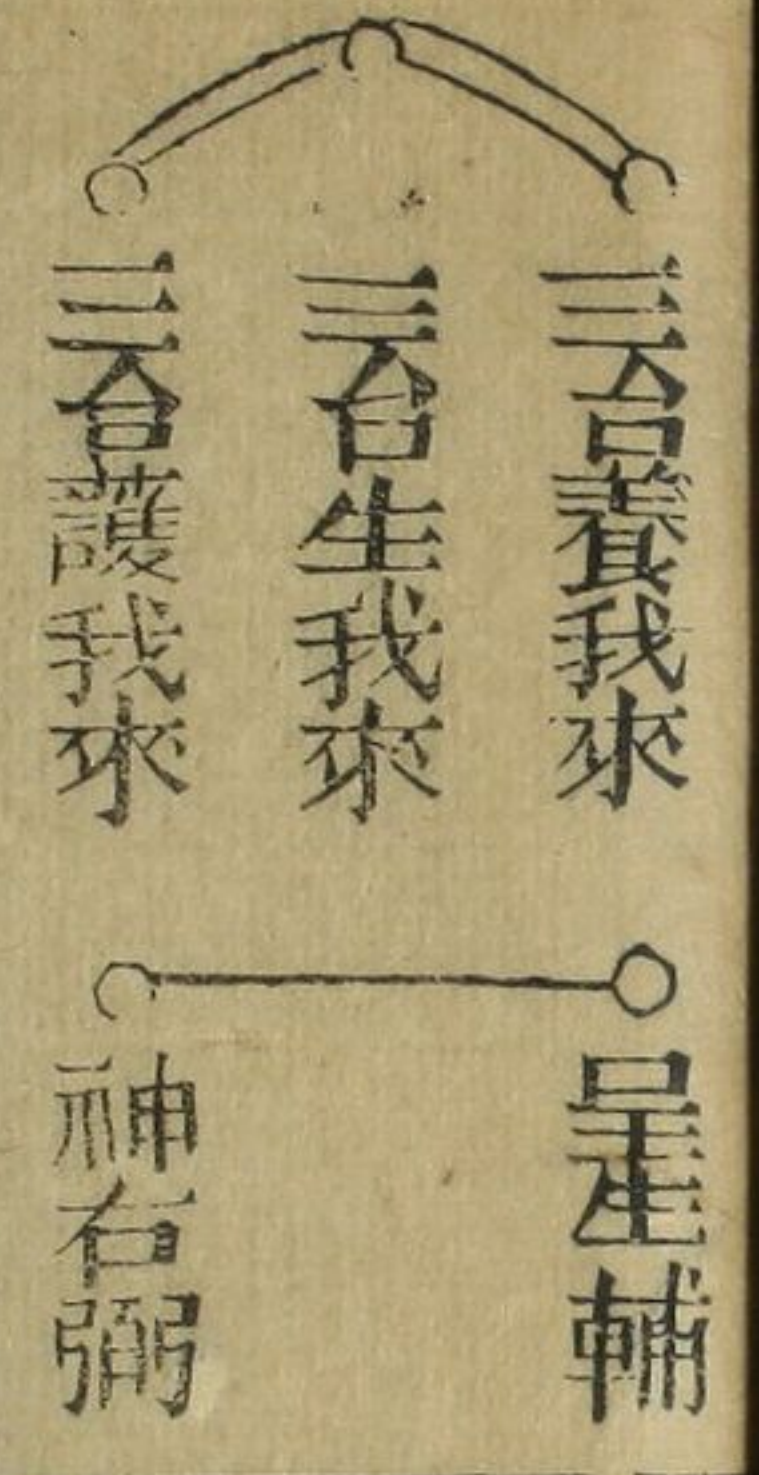 三台養我來
三台生我來
三台護我來
輔
神右弼